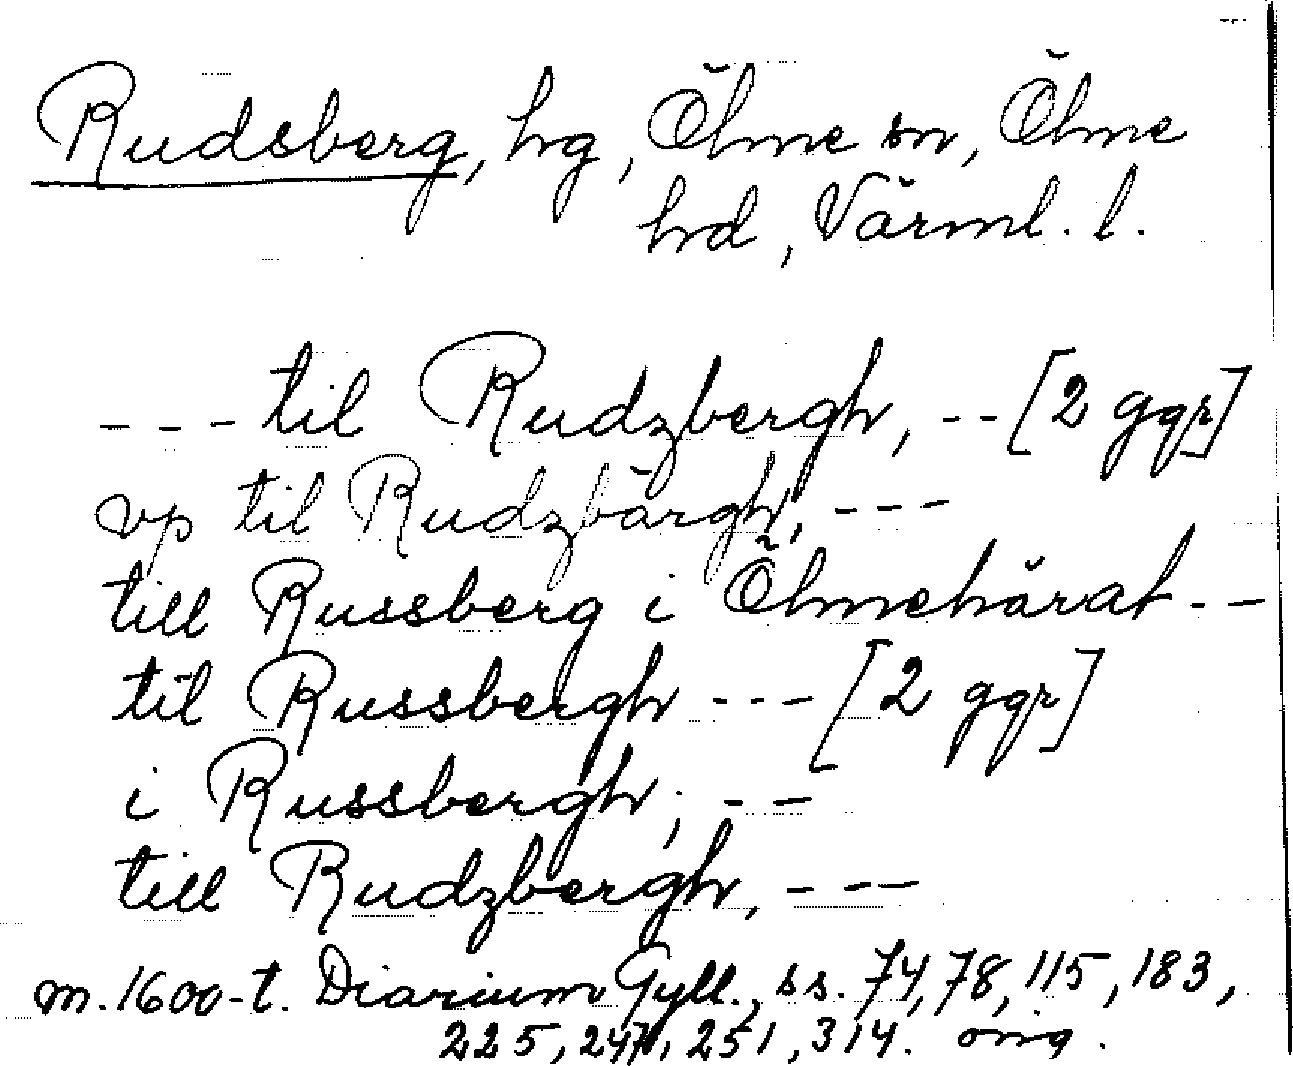 Rudsberg, hg, Ölme sn, Ölme
hd, Värml. l.
--- til Rudzbergh, -- [2 ggr]
vp til Rudzbärgh, ---
till Russberg i Ölmehärat --
til Russbergh --- [2 ggr]
i Russbergh, --
till Rudzbergh, ---
m. 1600-t. Diarium Gyll., ss. 74, 78, 115, 183,
225, 247, 251, 314. orig.